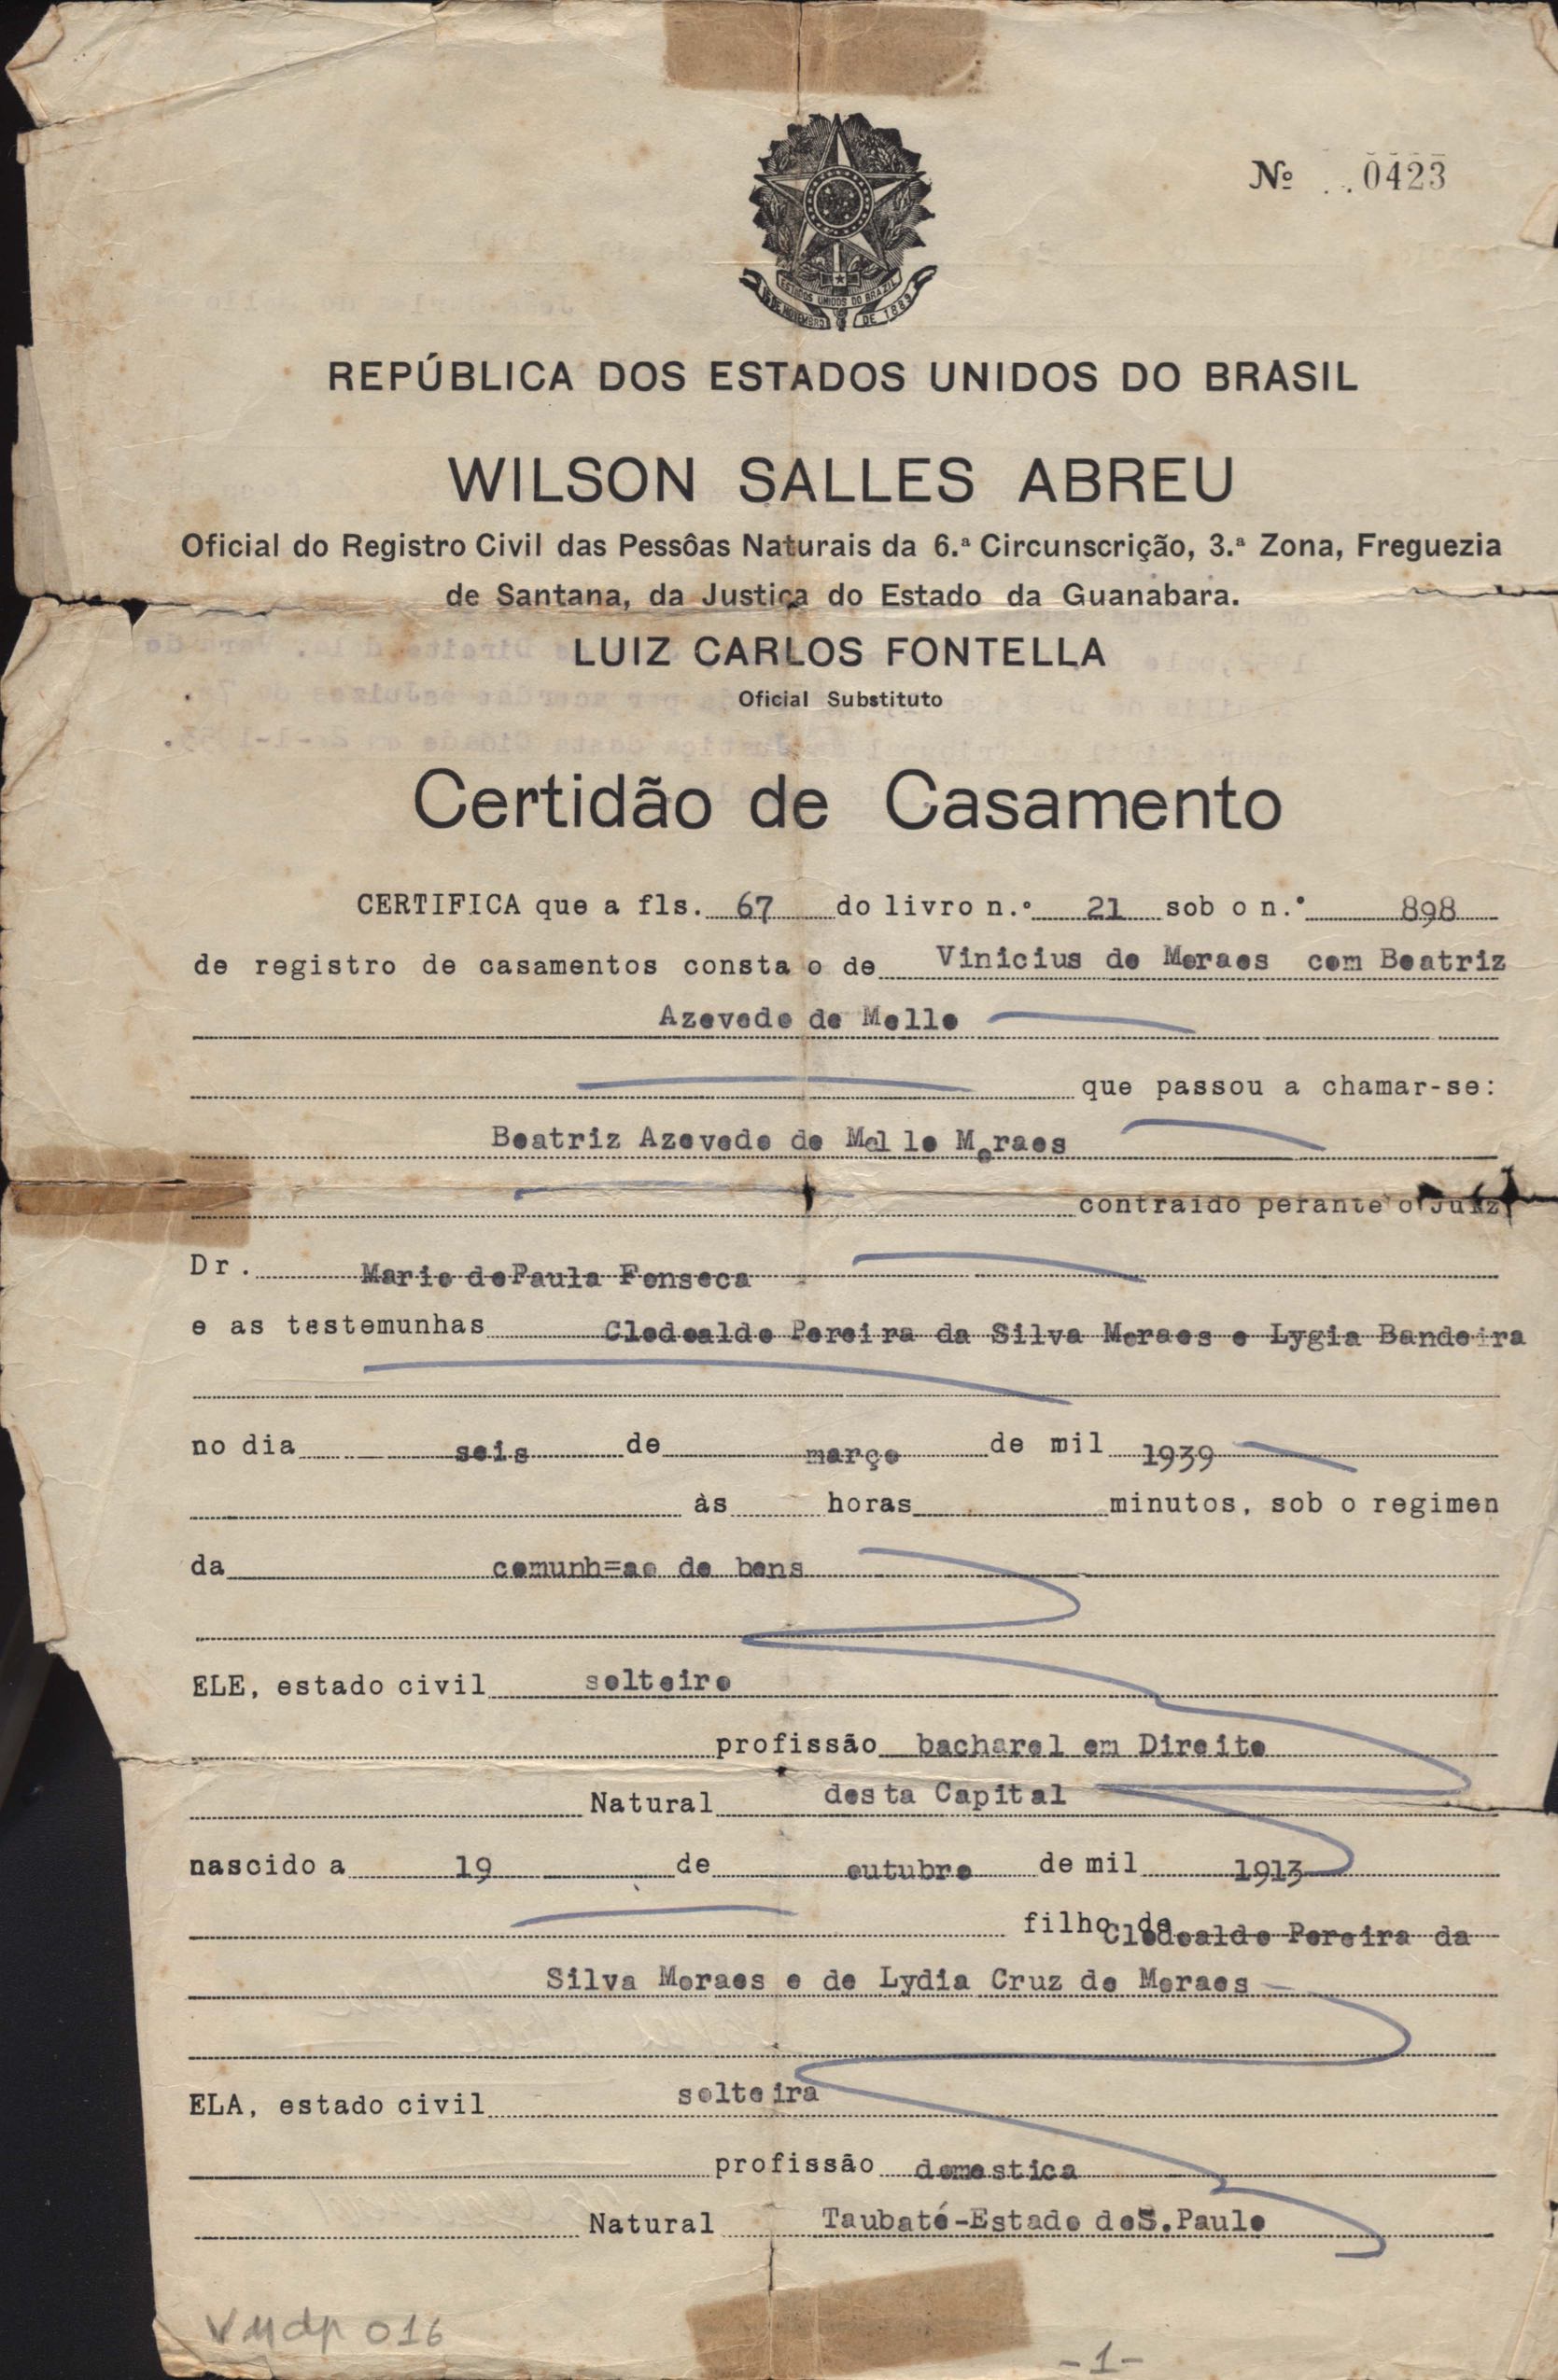 Nº 0423
ESTADOS UNIDOS DO BRAZIL
15 DE NOVEMBRO DE 1889
REPÚBLICA DOS ESTADOS UNIDOS DO BRASIL
WILSON SALLES ABREU
Oficial do Registro Civil das Pessôas Naturais da 6.ª Circunscrição, 3.ª Zona, Freguezia
de Santana, da Justiça do Estado da Guanabara.
LUIZ CARLOS FONTELLA
Oficial Substituto
Certidão de Casamento
CERTIFICA que a fls. 67 do livro n.º 21 sob o n.º 898
de registro de casamentos consta o de Vinicius de Moraes com Beatriz
Azevedo de Mello
que passou a chamar-se:
Beatriz Azevedo de Mello Moraes
contraido perante o Juiz
Dr. Mario dePaula Fonseca
e as testemunhas Clodoaldo Pereira da Silva Moraes e Lygia Bandeira
no dia seis de março de mil 1939
às horas minutos, sob o regimen
da comunh=ao de bens
ELE, estado civil solteiro
profissão bacharel em Direito
Natural desta Capital
nascido a 19 de outubro de mil 1913
filho de Clodoaldo Pereira da
Silva Moraes e de Lydia Cruz de Moraes
ELA, estado civil solteira
profissão domestica
Natural Taubaté-Estado deS.Paulo
VMdp 016
-1-